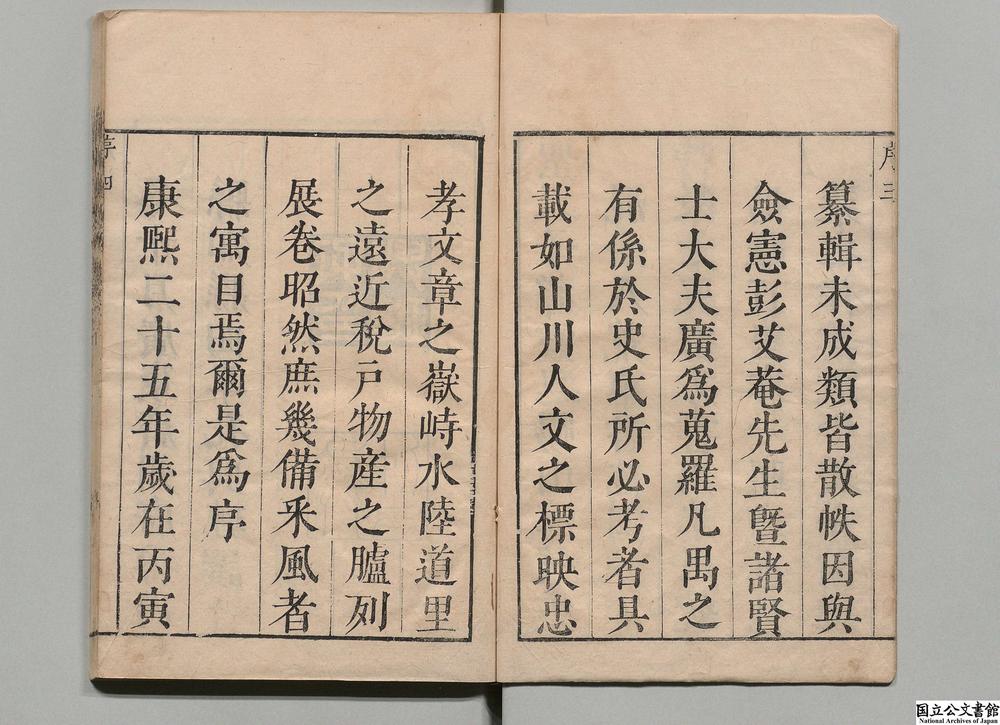 序三
纂輯未成類皆散帙因與
僉憲彭艾菴先生曁諸賢
士大夫廣爲蒐羅凡禺之
有係於史氏所必考者具
載如山川人文之標映忠
孝文章之嶽峙水陸道里
之遠近稅戶物産之臚列
展卷昭然庶幾備釆風者
之寓目焉爾是爲序
康熈二十五年歲在丙寅
序四
国立公文書館
National Archives of Japan